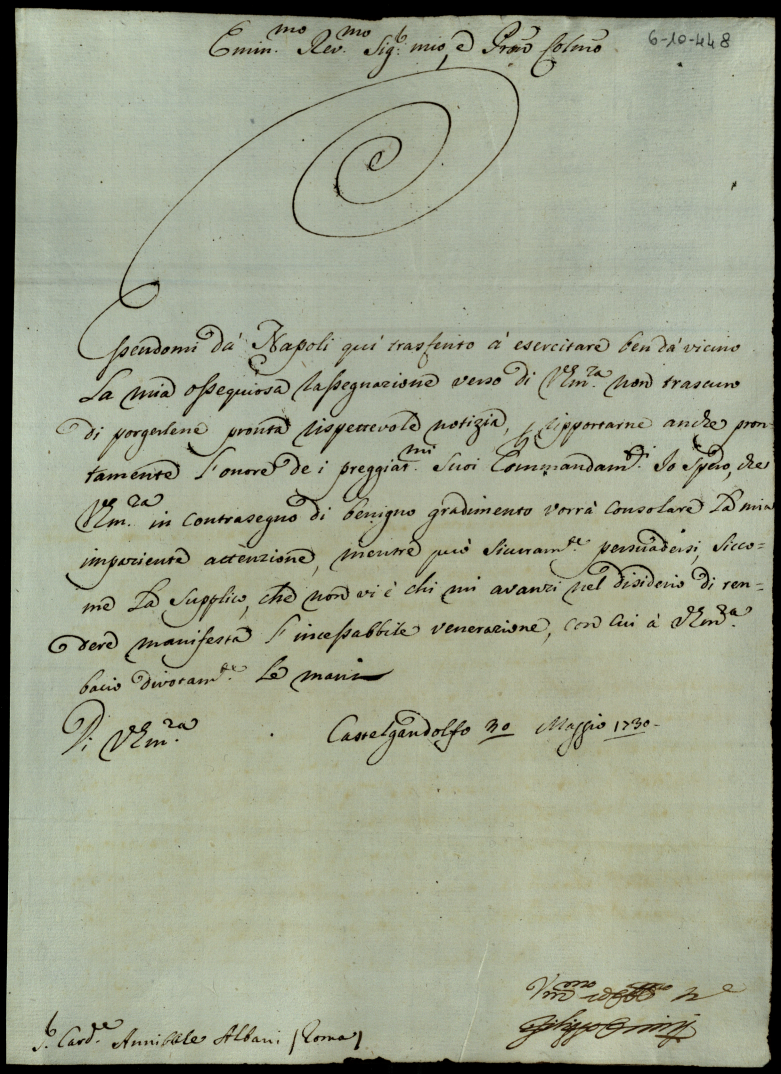 Emin.mo Rev.mo Sig.r mio, e Pron Colmo
6-10-448
Essendomi dà Napoli quì trasferito à esercitare ben dà vicino
la mia ossequiosa rassegnazione verso di VEm.za non trascuro
di porgerlene pronta rispettevole notizia, p riportarne anche pron-
tamente l'onore de i preggiat.mi suoi Commandam.ti. Io spero, che
VEm.za in contrasegno di benigno gradimento vorrà consolare la mia
impaziente attenzione, mentre può sicuram.te persuadersi, sicco-
me La supplico, che non vi è chi mi avanzi nel disiderio di ren-
dere manifesta l'incessabbile venerazione, con cui à VEm.za
bacio divotam.te le mani
Di VEm.za
Castelgandolfo 30 Maggio 1730
S.r Card.le Annibale Albani (Roma)
Filippo